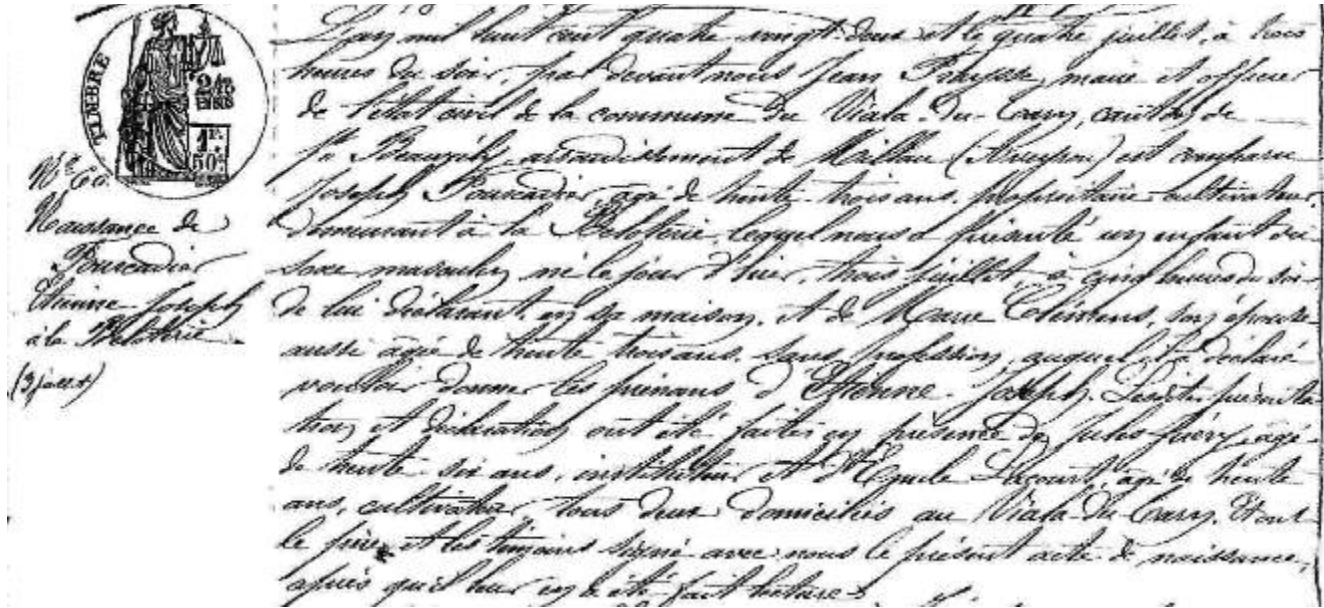 TIMBRE
2/10
EN SUS
1F.
50c.
Naissance de
Fourcadier
Etienne Joseph
à la Beloterie
(3 juillet)
L'an mil huit cent quatre vingt-deux et le quatre juillet, à trois
heures du soir, par devant nous Jean maire et officier
de l'état civil de la commune du Viala-du-Tarn, canton de
St Beauzély, arrondissement de Millau (Aveyron) est comparu
Joseph Fourcadier, agé de trente trois ans, propriétaire cultivateur,
demeurant à la Beloterie, lequel nous a présenté un enfant du
sexe masculin, né le jour d'hier, trois juillet, à cinq heures du soir
de lui déclarant, en sa maison, et de Marie Clémens, son épouse
aussi agée de trente trois ans, sans profession, auquel il a déclaré
vouloir donner les prénoms d'Etienne Joseph. Lesdites présenta-
tion et déclaration ont été faites en présence de Jules agé
de trente six ans, instituteur et d'Emile Lacourt, agé de trente
ans, cultivateur tous deux domiciliés au Viala-du-Tarn. Et ont
le père et les témoins signé avec nous le présent acte de naissance,
après qu'il leur en a été fait lecture